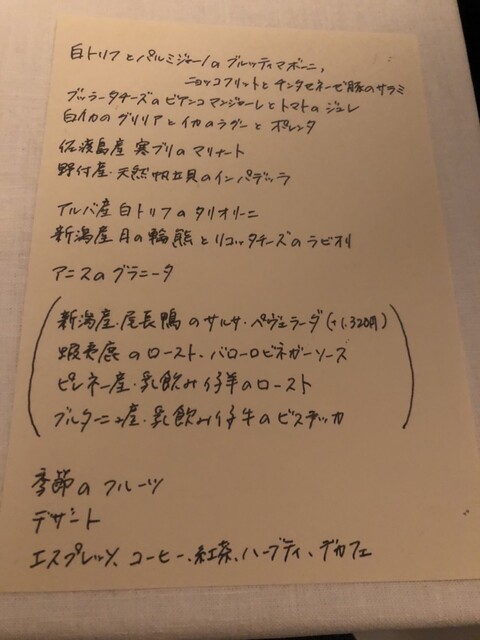 白トリフとパルミジャーノのブルッティマボーニ、
ニョッコフリットとチンタセネーゼ豚のサラミ
ブッラータチーズのビアンコマンジャーレとトマトのジュレ
白イカのグリリアとイカのラグーとポレンタ
佐渡島産 寒ブリのマリナート
野付産・天然帆立貝のインパデッラ
アルバ産白トリフのタリオリーニ
新潟産月の輪熊とリコッタチーズのラビオリ
アニスのグラニータ
新潟産・尾長鴨のサルサ・ペヴェラーダ(+1,320円)
蝦夷鹿のロースト、バローロビネガーソース
ピレネー産・乳飲み仔羊のロースト
ブルターニュ産・乳飲み仔牛のビステッカ
季節のフルーツ
デザート
エスプレッソ、コーヒー、紅茶、ハーブティ、デカフェ